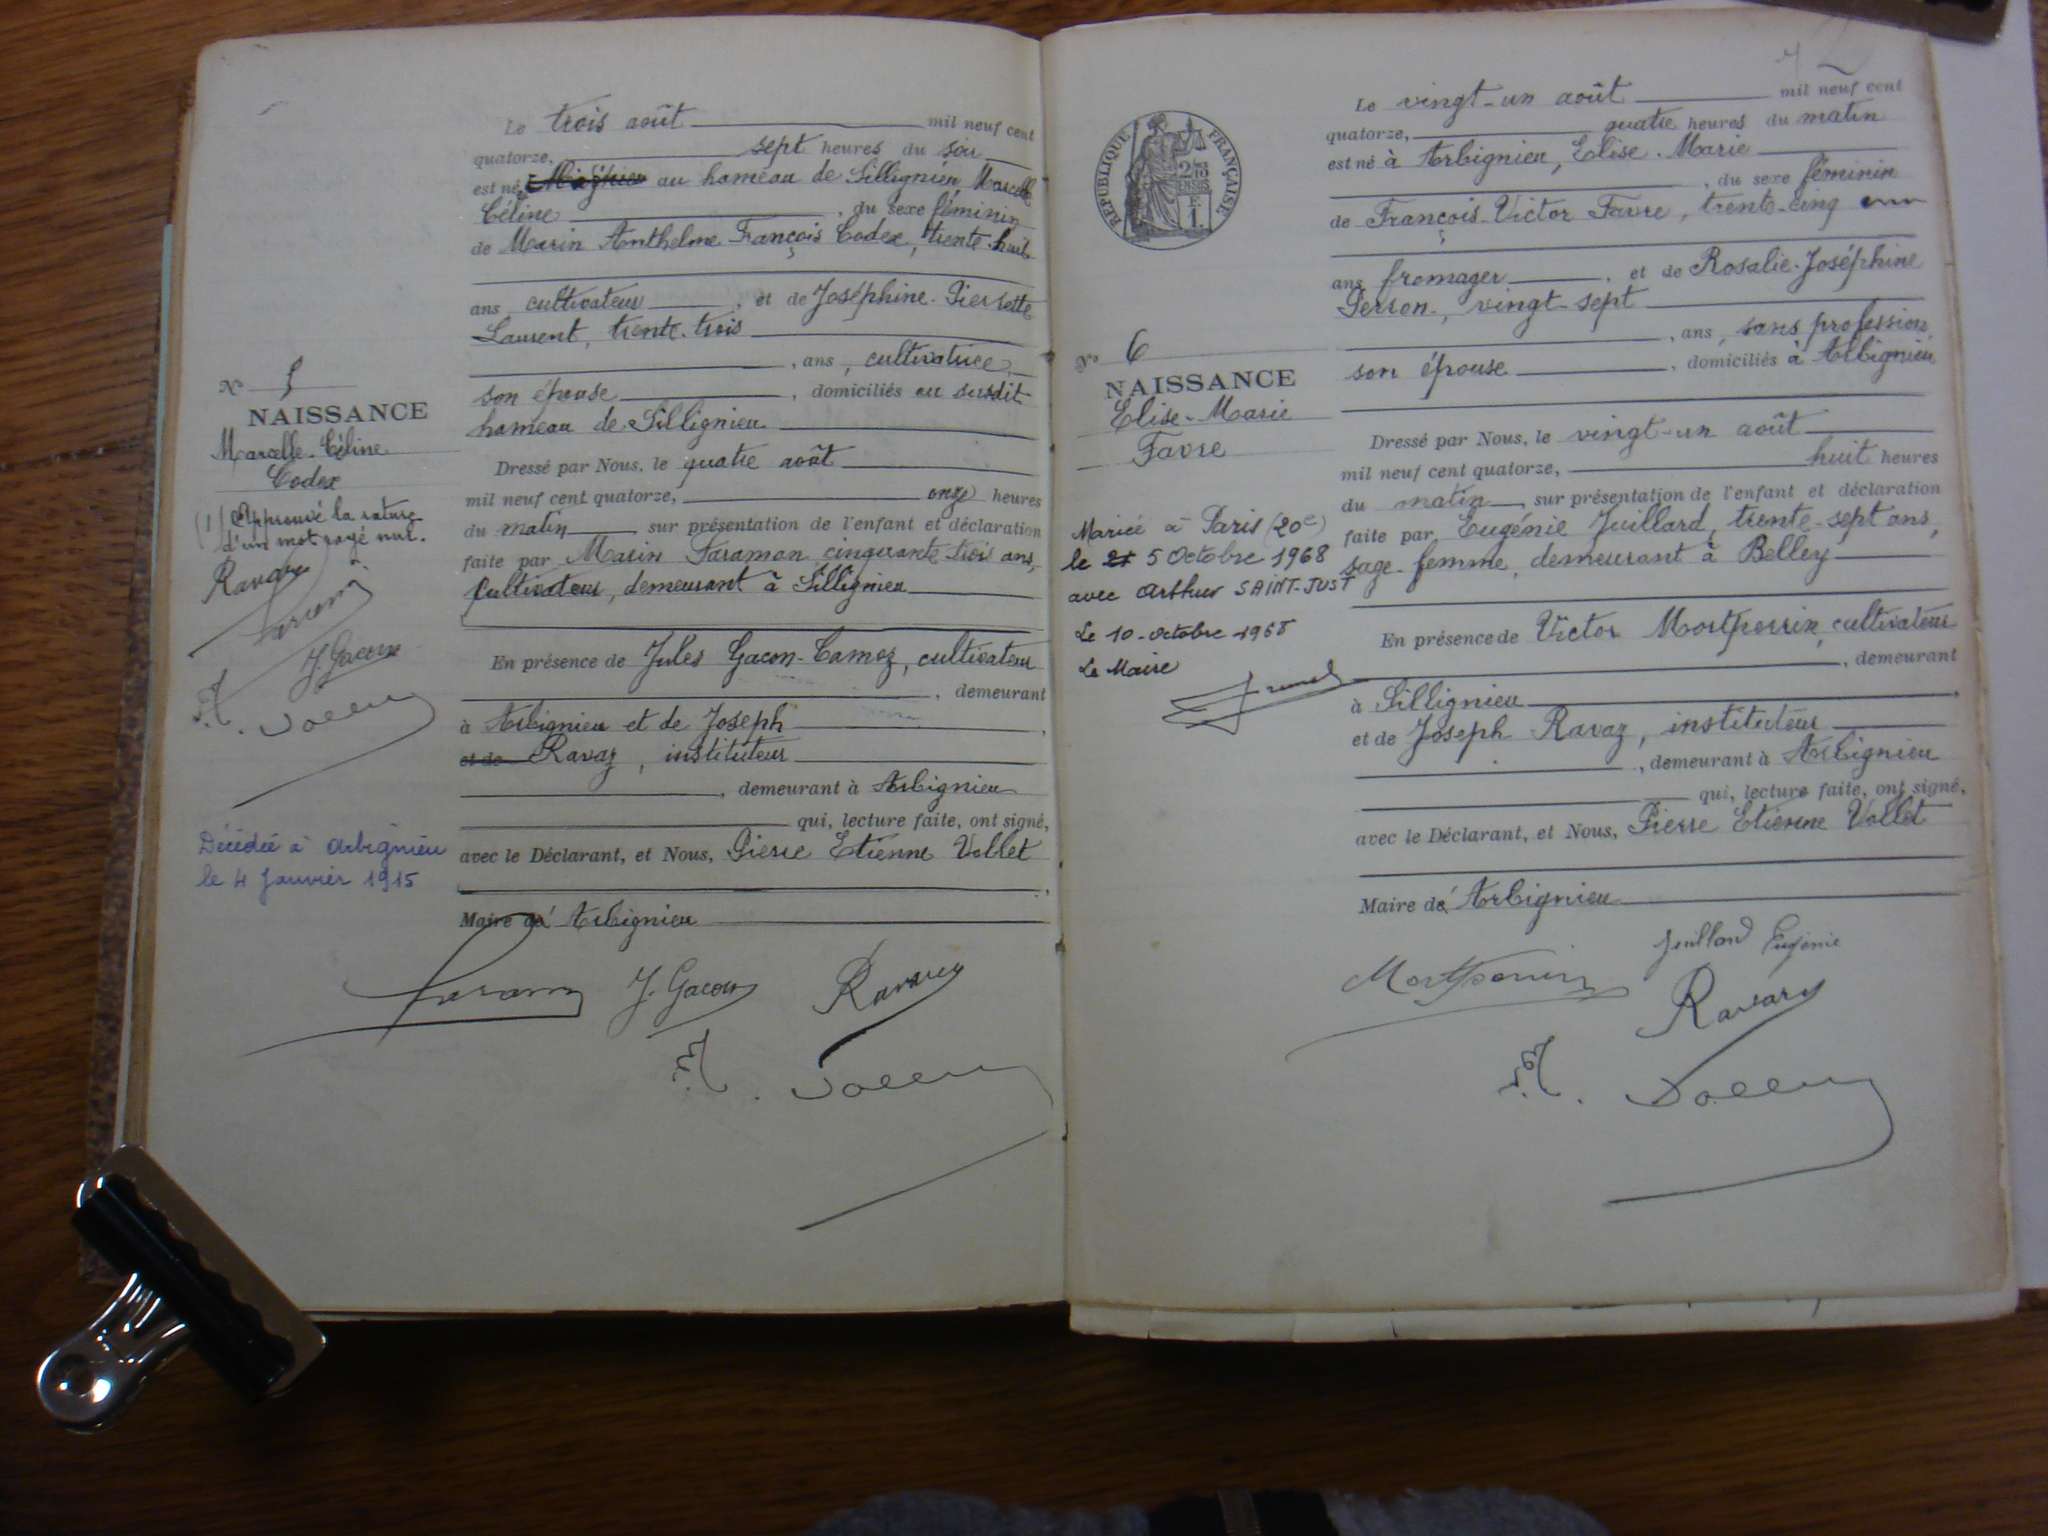 Le trois août mil neuf cent
quatorze, sept heures du soir
est né au hameau de Sillignieu, Marcelle
Céline, du sexe féminin
de Marin Anthelme François Codex, trente-huit
ans cultivateur, et de Joséphine-Pierrette
Laurent, trente-trois
, ans, cultivatrice,
son épouse, domiciliés au susdit
hameau de Sillignieu
Dressé par Nous, le quatre août
mil neuf cent quatorze, onze heures
du matin sur présentation de l'enfant et déclaration
faite par Marin Faraman cinquante trois ans,
Cultivateur, demeurant à Sillignieu
En présence de Jules Gacon-Camoz, cultivateur
, demeurant
à Arbignieu et de Joseph
et de Ravaz, instituteur
, demeurant à Arbignieu
qui, lecture faite, ont signé,
avec le Déclarant, et Nous, Pierre Etienne Vollet
Maire d'Arbignieu
J. Gacon Ravaz
N° 5
NAISSANCE
Marcelle-Céline
Codex
(1) Approuvé la rature
d'un mot rayé nul.
Ravaz
J. Gacon
Décédée à Arbignieu
le 4 Janvier 1915
RÉPUBLIQUE FRANÇAISE
Le vingt-un août mil neuf cent
quatorze, quatre heures du matin
est né à Arbignieu, Elise-Marie
, du sexe féminin
de François-Victor Favre, trente-cinq
ans fromager, et de Rosalie-Joséphine
Perron, vingt-sept
, ans, sans profession
son épouse, domiciliés à Arbignieu
Dressé par Nous, le vingt-un août
mil neuf cent quatorze, huit heures
du matin sur présentation de l'enfant et déclaration
faite par Eugénie Juillard, trente-sept ans,
sage-femme, demeurant à Belley
En présence de Victor Montperrin, cultivateur
, demeurant
à Sillignieu
et de Joseph Ravaz, instituteur
, demeurant à Arbignieu
qui, lecture faite, ont signé,
avec le Déclarant, et Nous, Pierre Etienne Vollet
Maire d'Arbignieu
Juillard Eugénie
Montperrin
Ravaz
N° 6
NAISSANCE
Elise-Marie
Favre
Mariée à Paris (20e)
le 5 Octobre 1968
avec Arthur SAINT-JUST
Le 10 octobre 1968
Le Maire